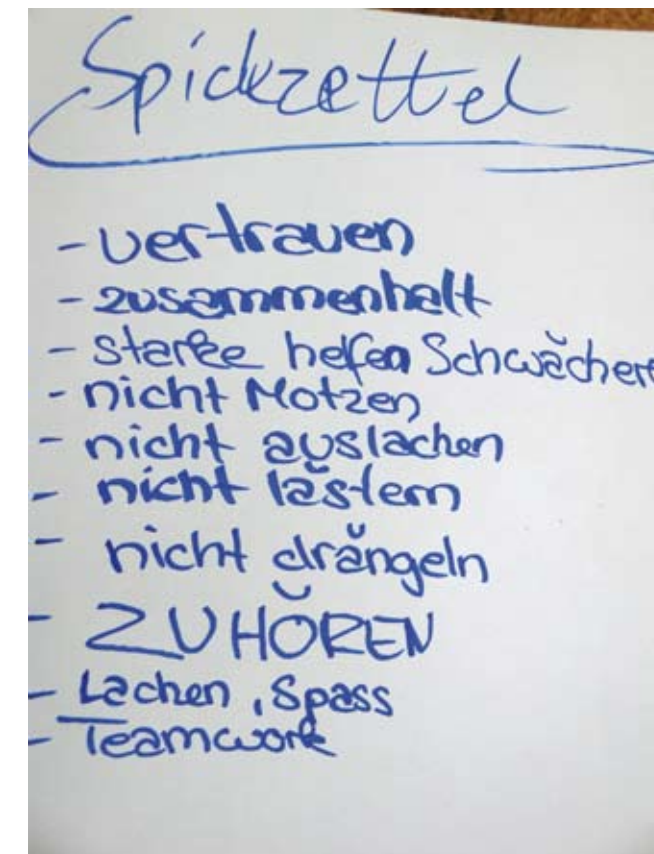 Spickzettel
- vertrauen
- zusammenhalt
- starke helfen Schwächere
- nicht Motzen
- nicht auslachen
- nicht lästern
- nicht drängeln
- ZUHÖREN
- Lachen, Spass
- Teamwork